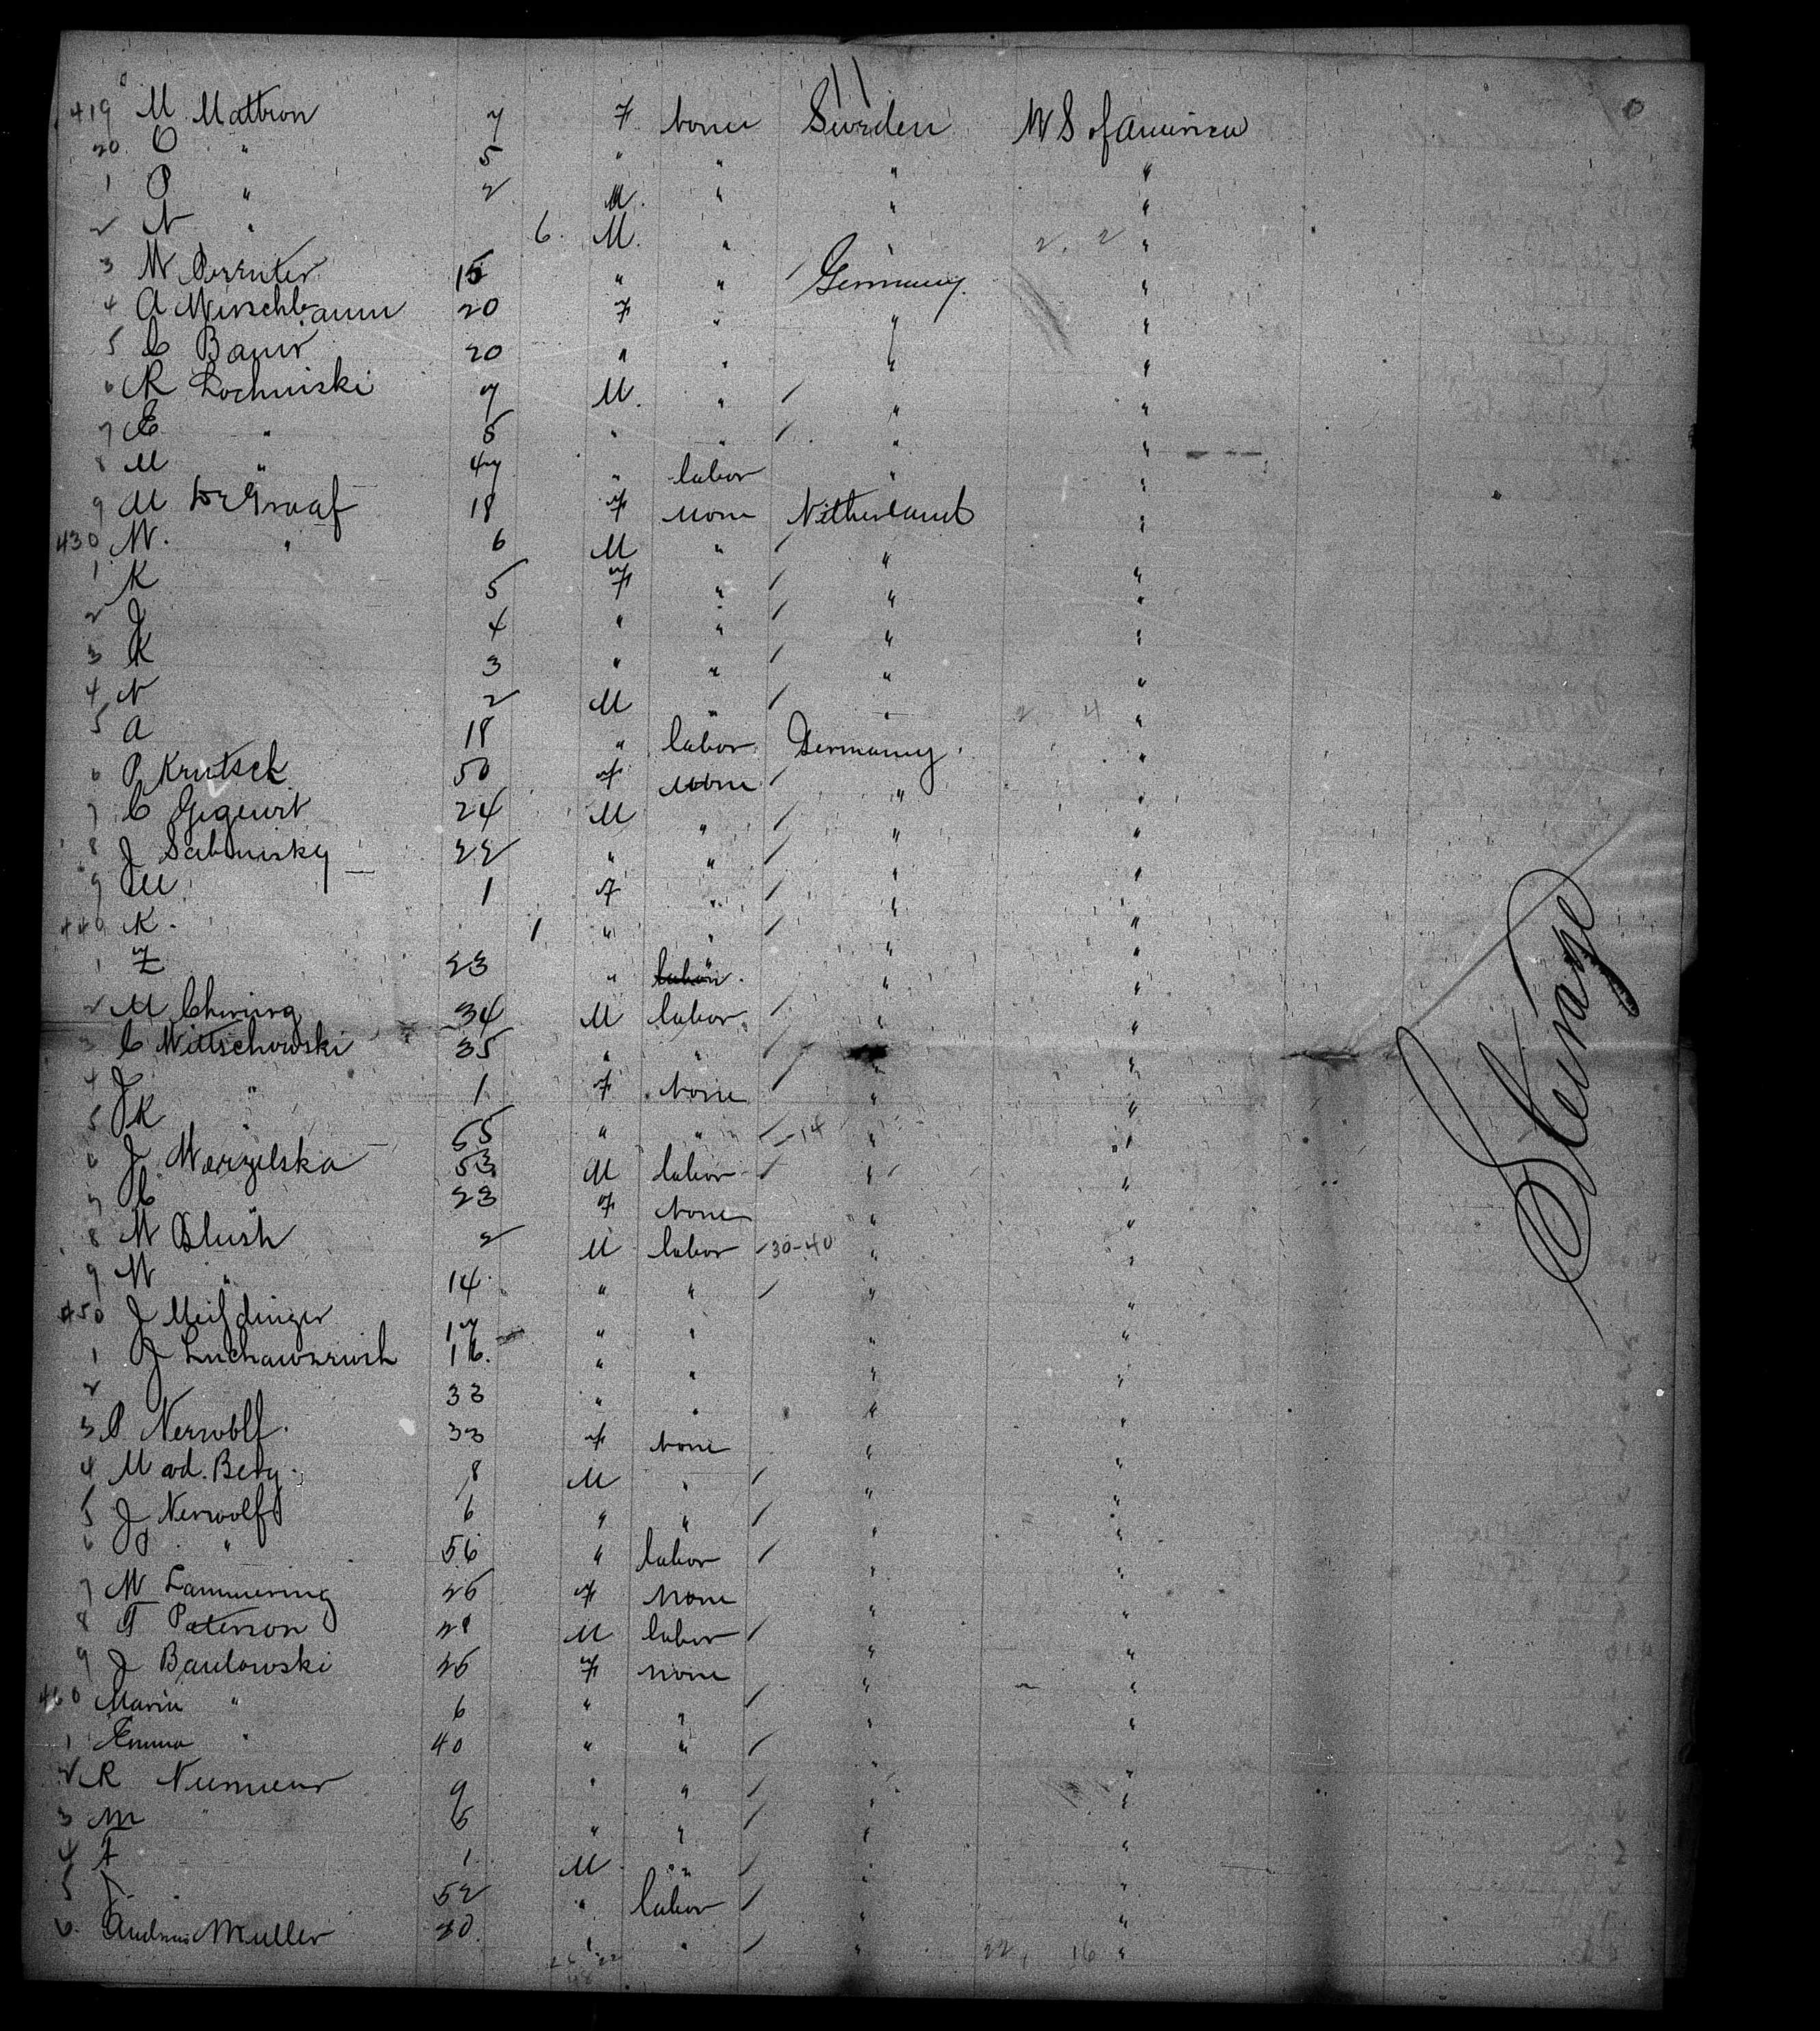 11
419 M Mattson 7 F None Sweden U S of America
20 O " 5 " " " "
1 P " 2 M. " " "
2 N " 6. M. " " "
3 W 15 " " Germany. "
4 A Wirschbaum 20 F " " "
5 C Baur 20 " " " "
6 R Lochniski 7 M. " " "
7 E " 5 " " " "
8 M " 47 " labor " "
9 M DeGraaf 18 F None Netherland "
430 W. " 6 M " " "
1 K 5 F " " "
2 J 4 " " " "
3 K 3 " " " "
4 N 2 M " " "
5 A 18 " labor Germany. "
6 P Krutsch 50 F None " "
7 C Gigeurit 24 M " " "
8 J Sabinisky 22 " " " "
9 M 1 F " " "
440 K. 1 " " " "
1 Z 23 " " "
2 M Chwirg 34 M labor " "
3 C Wittschowski 35 " " " "
4 J " 1 F None " "
5 K " 55 " " 14 " "
6 J Werzelska 53 M labor " "
7 C " 23 F None " "
8 W Blush 2 M labor 30-40 " "
9 W " 14 " " " "
450 J Meisdinger 17 " " " "
1 J 16. " " " "
2 33 " " " "
3 P Nerwolf. 33 F None " "
4 M v.d. Berg. 8 M " " "
5 J Nerwolf 6 " " " "
6 P " 56 " labor " "
7 W Lammering 26 F None " "
8 T Paterson 28 M labor " "
9 J Baulowski 26 F None " "
460 Maria " 6 " " " "
1 Emma " 40 " " " "
2 R Niemeur 9 " " " "
3 M " 6 " " " "
4 A 1 M " " "
5 J. 52 " labor " "
6. Andreas Muller 20. " " " 22, 16 "
Steerage